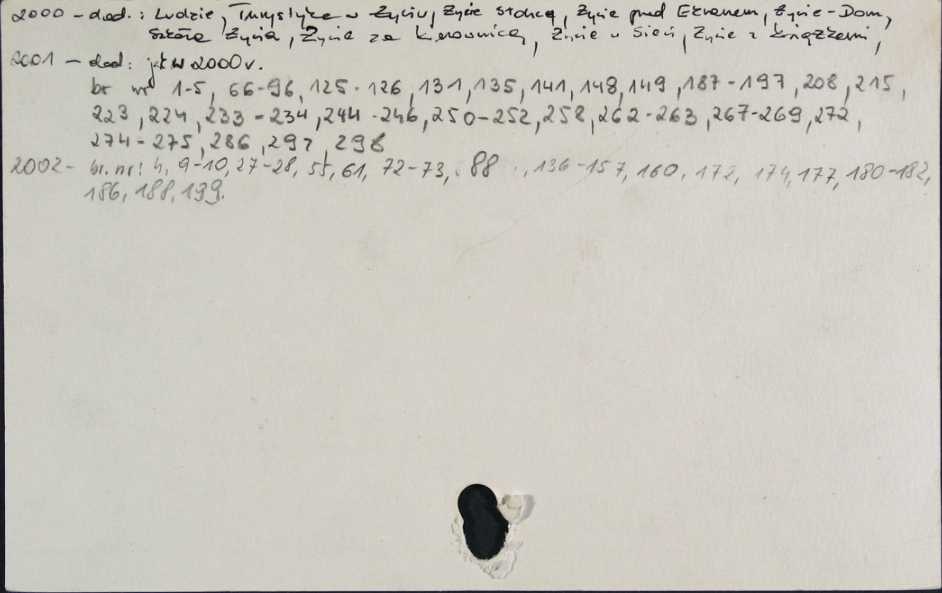 2000 - dod.: Ludzie, Turystyka w Życiu, Życie Stolicą, Życie pod Ekranem, Życie-Dom,
Szkoła Życia, Życie za kierownicą, Życie w Sieci, Życie z książkami,
2001 - dod: jak w 2000 r.
br nr 1-5, 66-96, 125-126, 131, 135, 141, 148, 149, 187-197, 208, 215,
223, 224, 233-234, 244-246, 250-252, 258, 262-263, 267-269, 272,
274-275, 286, 297, 298
2002 - br. nr: 4, 9-10, 27-28, 55, 61, 72-73, 88, 136-157, 160, 172, 174, 177, 180-182,
186, 188, 199.